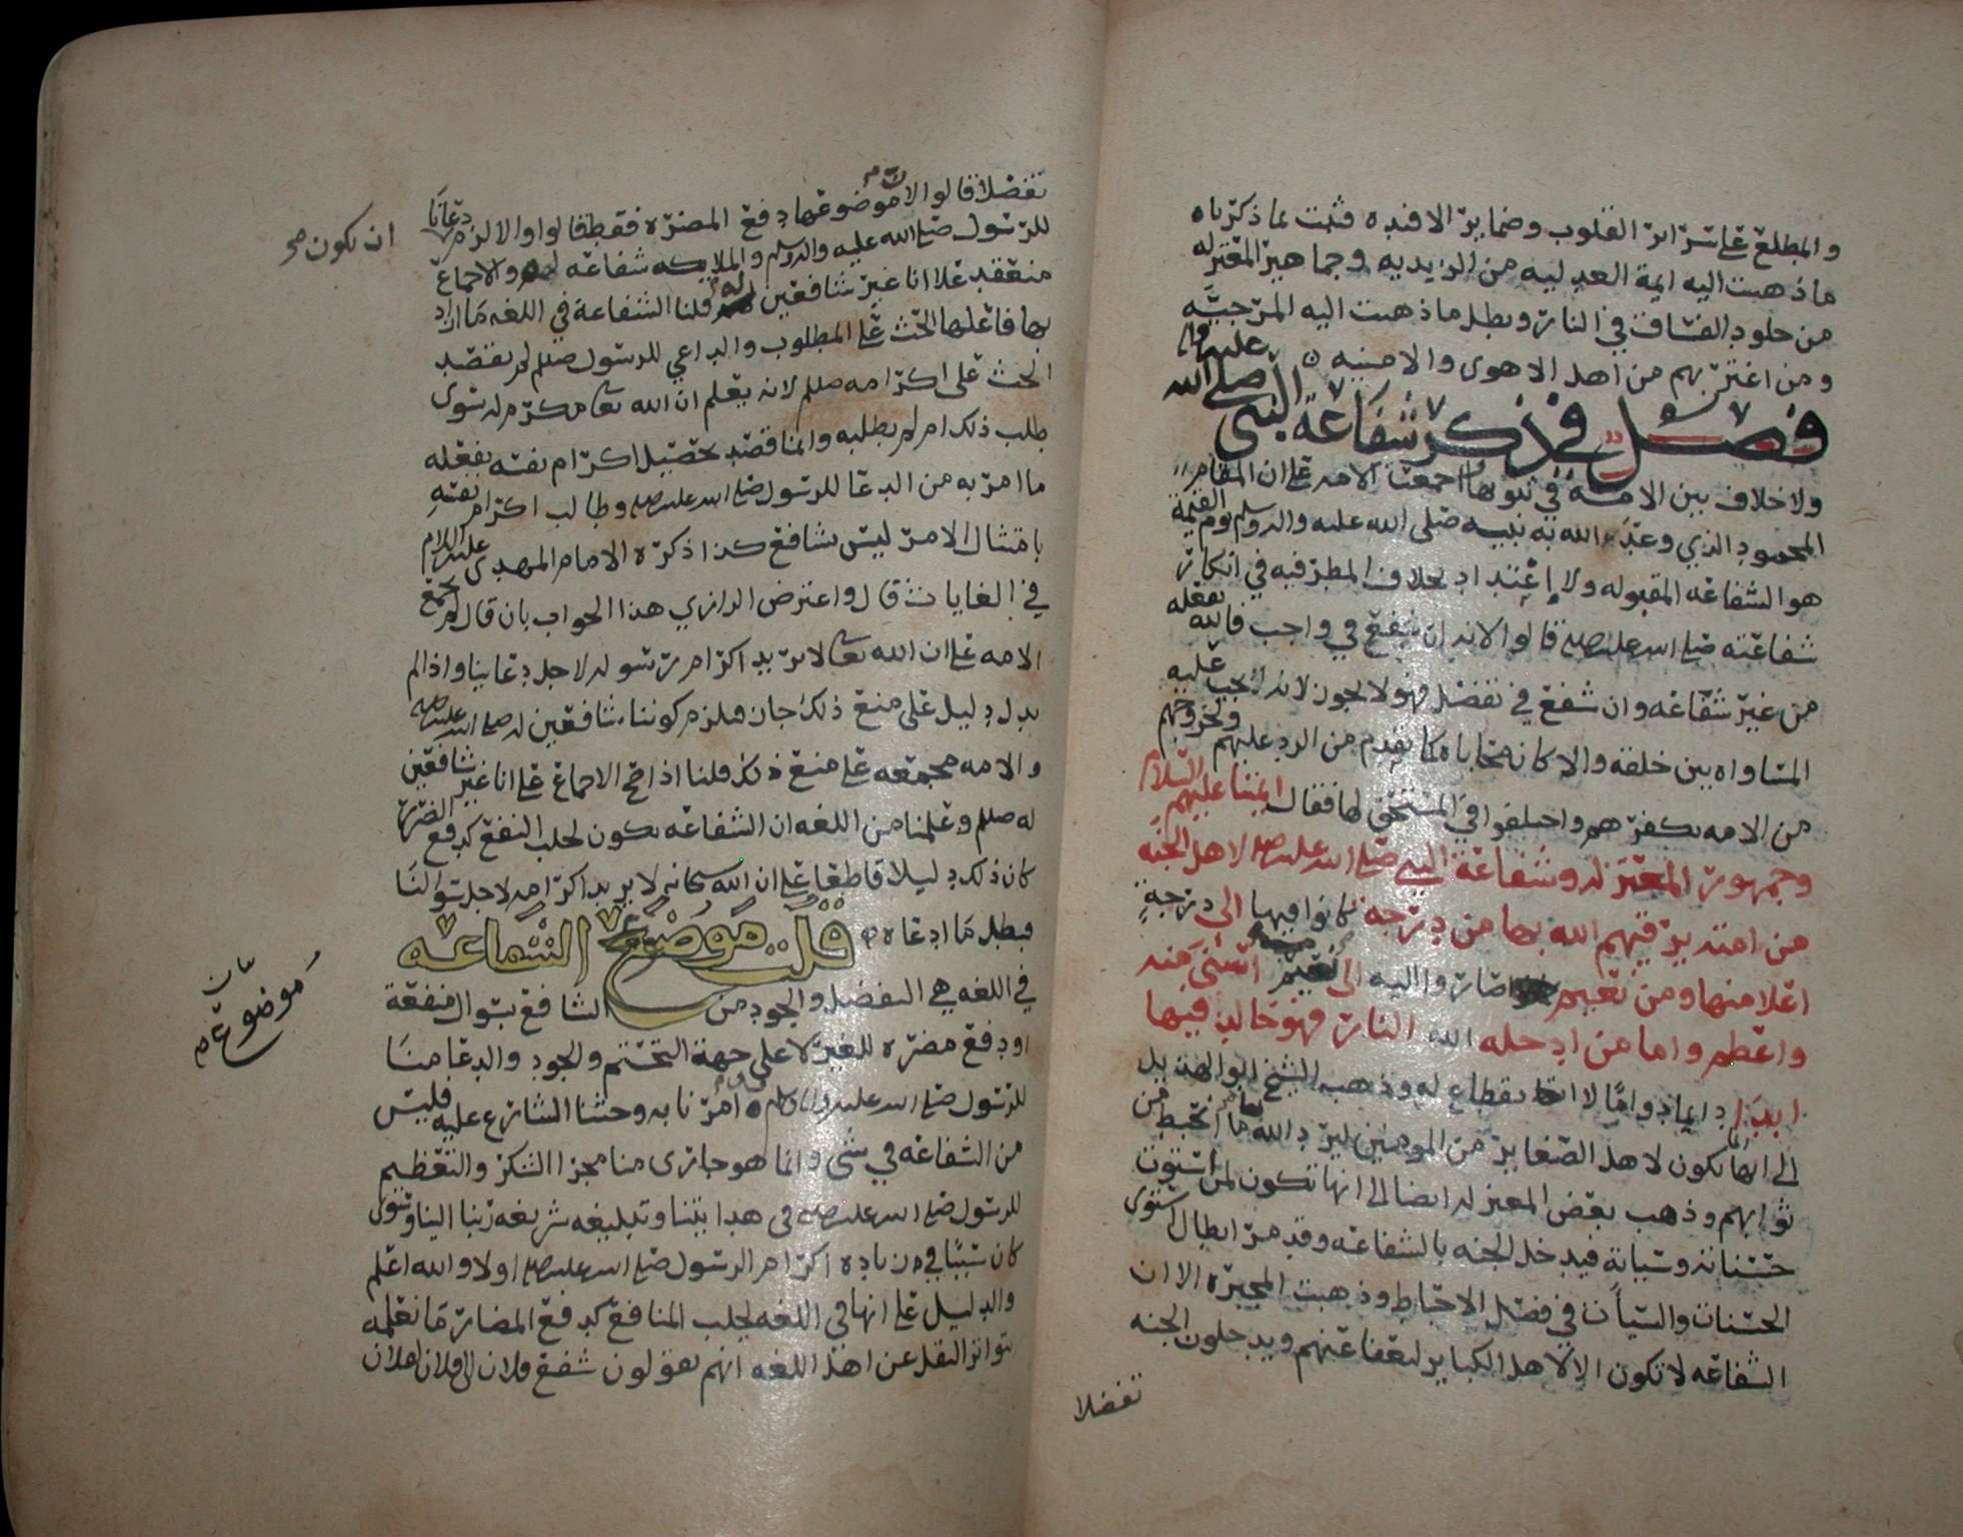 والمطلع على سرائر القلوب وضماير الافئده فثبت بما ذكرناه
ما ذهبت اليه ايمة العدليه من الزيديه وجماهير المعتزله
من خلود الفساق في النار وبطل ما ذهبت اليه المرجيه
ومن اغتر بهم من اهل الاهوى والامنيه
فصل في ذكر شفاعة النبي صلى الله عليه واله
ولا خلاف بين الامة في ثبوتها اجمعت الامه على ان المقام
المحمود الذي وعد الله به نبيه صلى الله عليه واله وسلم يوم القيمة
هو الشفاعه المقبوله ولا إعتداد بخلاف المطرفيه في انكار
شفاعته صلى الله عليه وسلم قالوا لانه ان شفع في واجب فالله يفعله
من غير شفاعه وان شفع في تفضل فهو لا يجوز لانه يجب عليه
المساواه بين خلقه والا كانه محاباه كما تقدم من الرد عليهم ولخروجهم
من الامه بكفرهم واختلفوا في المستحق لها فقال ايمتنا عليهم السلام
وجمهور المعتزله وشفاعة النبي صلى الله عليه وسلم لاهل الجنه
من امته يرقيهم الله بها من درجة كانوا فيها الى درجة
اعلا منها ومن نعيم صاروا اليه الى نعيم اسنى منه
واعظم واما من ادخله الله النار فهو خالد فيها
ابدا دايما دواما لا انقطاع له وذهب الشيخ ابو الهذيل
الى انها تكون لاهل الصغاير من المومنين ليرد الله ما انحبط من
ثوابهم وذهب بعض المعتزله ايضا الى انها تكون لمن استوت
حسناته وسياته فيدخل الجنه بالشفاعه وقد مر ابطال استوى
الحسنات والسيأت في فصل الاحباط وذهبت المجبره الا ان
الشفاعه لا تكون الا لاهل الكباير ويدخلون الجنه
تفضلا
تفضلا قالوا لان موضوعها دفع المضره فقط قالوا والا لزم دعانا
ان تكون صح
للرسول صلى الله عليه واله وسلم والملايكه شفاعه له والاجماع
منعقد علا انا غير شافعين له قلنا الشفاعة في اللغه ما اراد
بها فاعلها الحث على المطلوب والداعي للرسول صللم لم يقصد
الحث على اكرامه صللم لانه يعلم ان الله تعا مكرم له سوى
طلب ذلك ام لم يطلبه وانما قصد تحصيل اكرام نفسه بفعله
ما امر به من الدعا للرسول صلى الله عليه وسلم وطالب اكرام نفسه
بامتثال الامر ليس بشافع كذا ذكره الامام المهدي عليه السلام
في الغايات قال واعترض الرازي هذا الجواب بان قال لم تجمع
الامه على ان الله تعا لا يريد اكرام رسوله لاجل دعاينا واذا لم
يدل دليل على منع ذلك جاز فلزم كوننا شافعين له صلى الله عليه وسلم
والامه مجمعه على منع ذلك قلنا اذا صح الاجماع على انا غير شافعين
له صللم وعلمنا من اللغه ان الشفاعه تكون لجلب النفع كدفع الضرر
كان ذلك دليلا قاطعا على ان الله سبحانه لا يريد اكرامه لاجل سؤالنا
فبطل ما ادعاه قلت موضوع الشفاعه
موضوع
في اللغه هي التفضل والجود من الشافع بسوال منفعة
او دفع مضره للغير لا على جهة التحتم والجود والدعا منا
للرسول صلى الله عليه وسلم امرنا به وحثنا الشارع عليه فليس
من الشفاعه في شى وانما هو جارى منا مجرا الشكر والتعظيم
للرسول صلى الله عليه وسلم في هدايتنا وتبليغه شريعه ربنا الينا وسوى
كان سببا في زياده اكرام الرسول صلى الله عليه وسلم اولا والله اعلم
والدليل على انها في اللغه لجلب المنافع كدفع المضار ما نعلمه
بتواتر النقل عن اهل اللغه انهم يقولون شفع فلان الى فلان لفلان